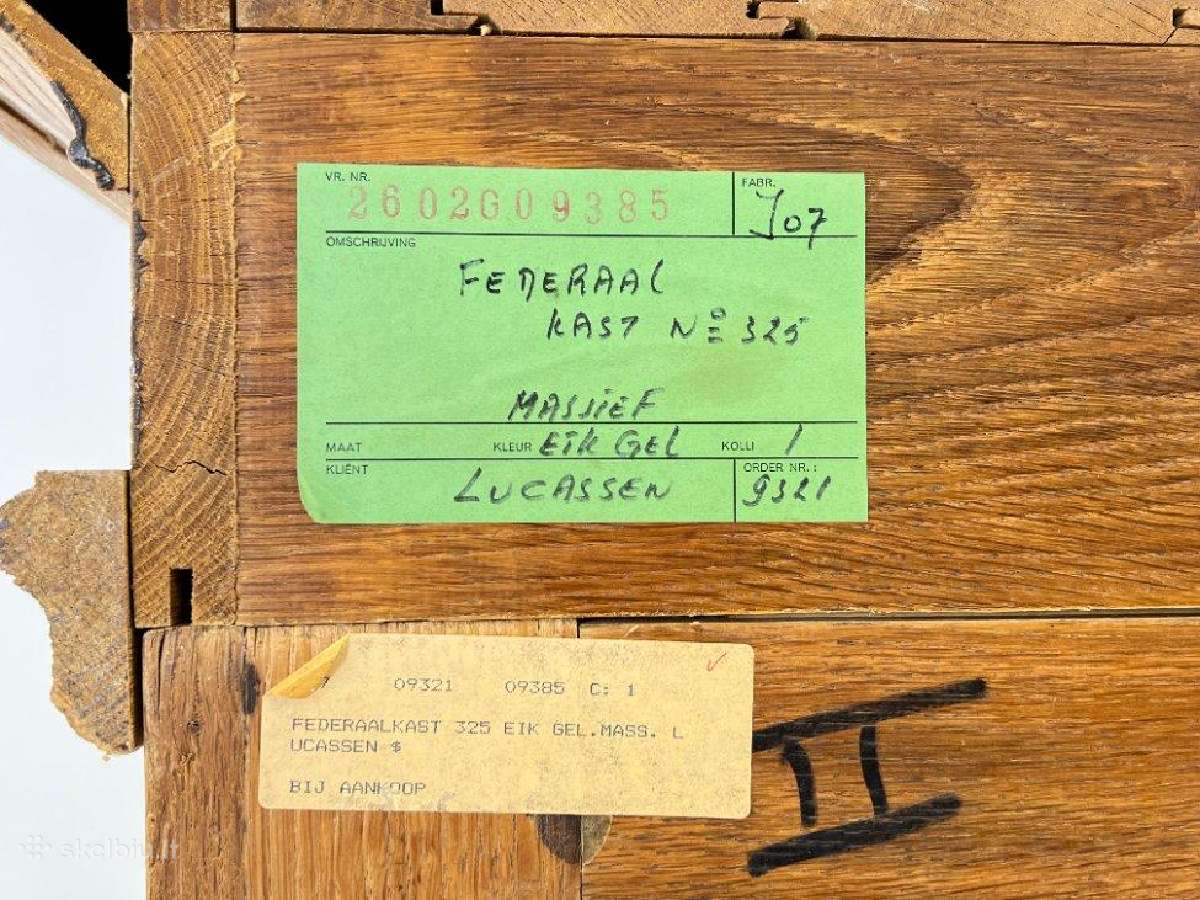 VR. NR.
2602G09385
FABR.
J07
OMSCHRIJVING
FEDERAAL
KAST Nº 325
MASSIEF
MAAT KLEUR EIK GEL KOLLI 1
KLIËNT
LUCASSEN
ORDER NR.:
9321
09321 09385 C: 1
FEDERAALKAST 325 EIK GEL.MASS. L
UCASSEN $
BIJ AANKOOP
II
skelbiu.lt